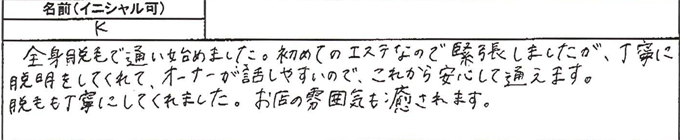 名前(イニシャル可)
K
全身脱毛で通い始めました。初めてのエステなので緊張しましたが、丁寧に
脱明をしてくれて、オーナーが話しやすいので、これから安心して通えます。
脱毛も丁寧にしてくれました。お店の雰囲気も癒されます。